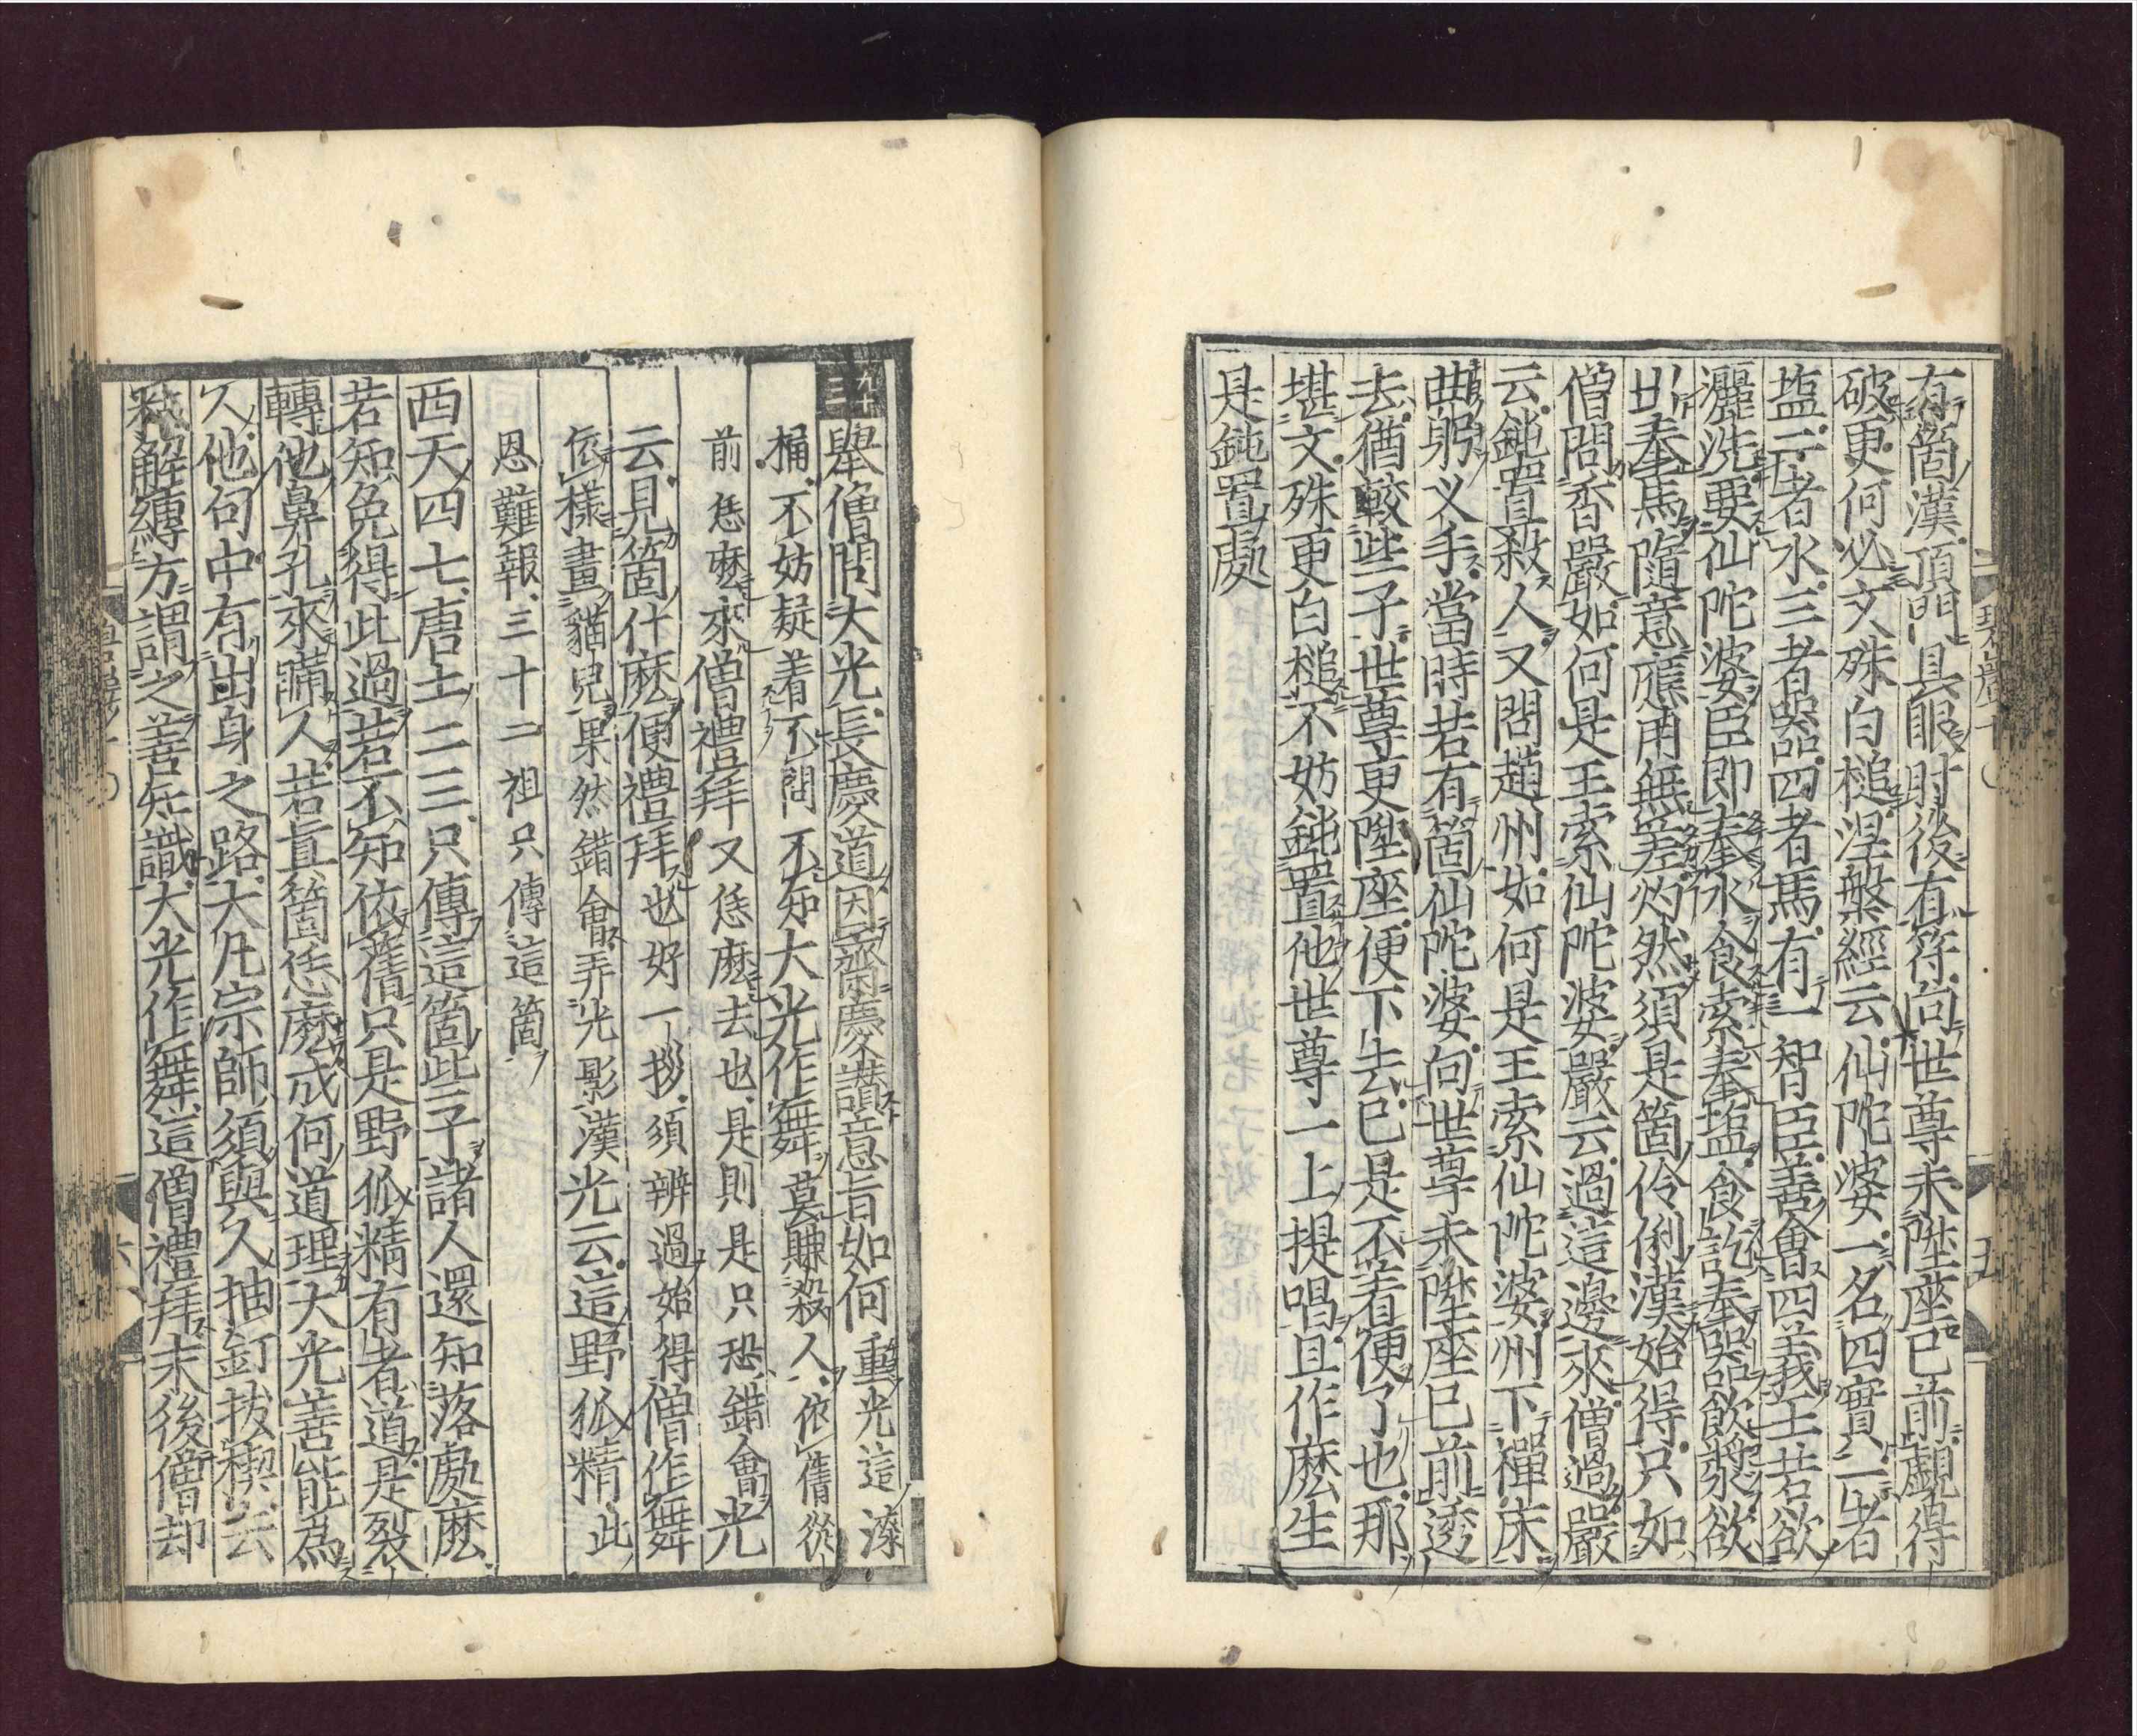 有箇漢頂門具眼肘後有符向世尊未陞座已前覷得
破更何必文殊白槌涅槃經云仙陀婆一名四實一者
塩二者水三者器四者馬有一智臣善會四義王若欲
灑洗要仙陀婆臣即奉水食索奉塩食訖奉器飲漿欲
出奉馬隨意應用無差灼然須是箇伶俐漢始得只如
僧問香嚴如何是王索仙陀婆嚴云過這邊來僧過嚴
云鈍置殺人又問趙州如何是王索仙陀婆州下禪床
曲躬叉手當時若有箇仙陀婆向世尊未陞座已前透
去猶較些子世尊更陞座便下去已是不着便了也那
堪文殊更白槌不妨鈍置他世尊一上提唱且作麽生
是鈍置處
碧巖十
五
九十三
舉僧問大光長慶道因齋慶讚意旨如何重光這漆
桶不妨疑着不問不知大光作舞莫賺殺人依舊從
前恁麽來僧禮拜又恁麽去也是則是只恐錯會光
云見箇什麽便禮拜也好一拶須辨過始得僧作舞
依樣畫猫兒果然錯會弄光影漢光云這野狐精此
恩難報三十二祖只傳這箇
西天四七唐土二三只傳這箇些子諸人還知落處麽
若知免得此過若不知依舊只是野狐精有者道是裂
轉他鼻孔來瞞人若眞箇恁麽成何道理大光善能爲
人他句中有出身之路大凡宗師須與人抽釘拔楔去
粘解縛方謂之善知識大光作舞這僧禮拜末後僧却
六